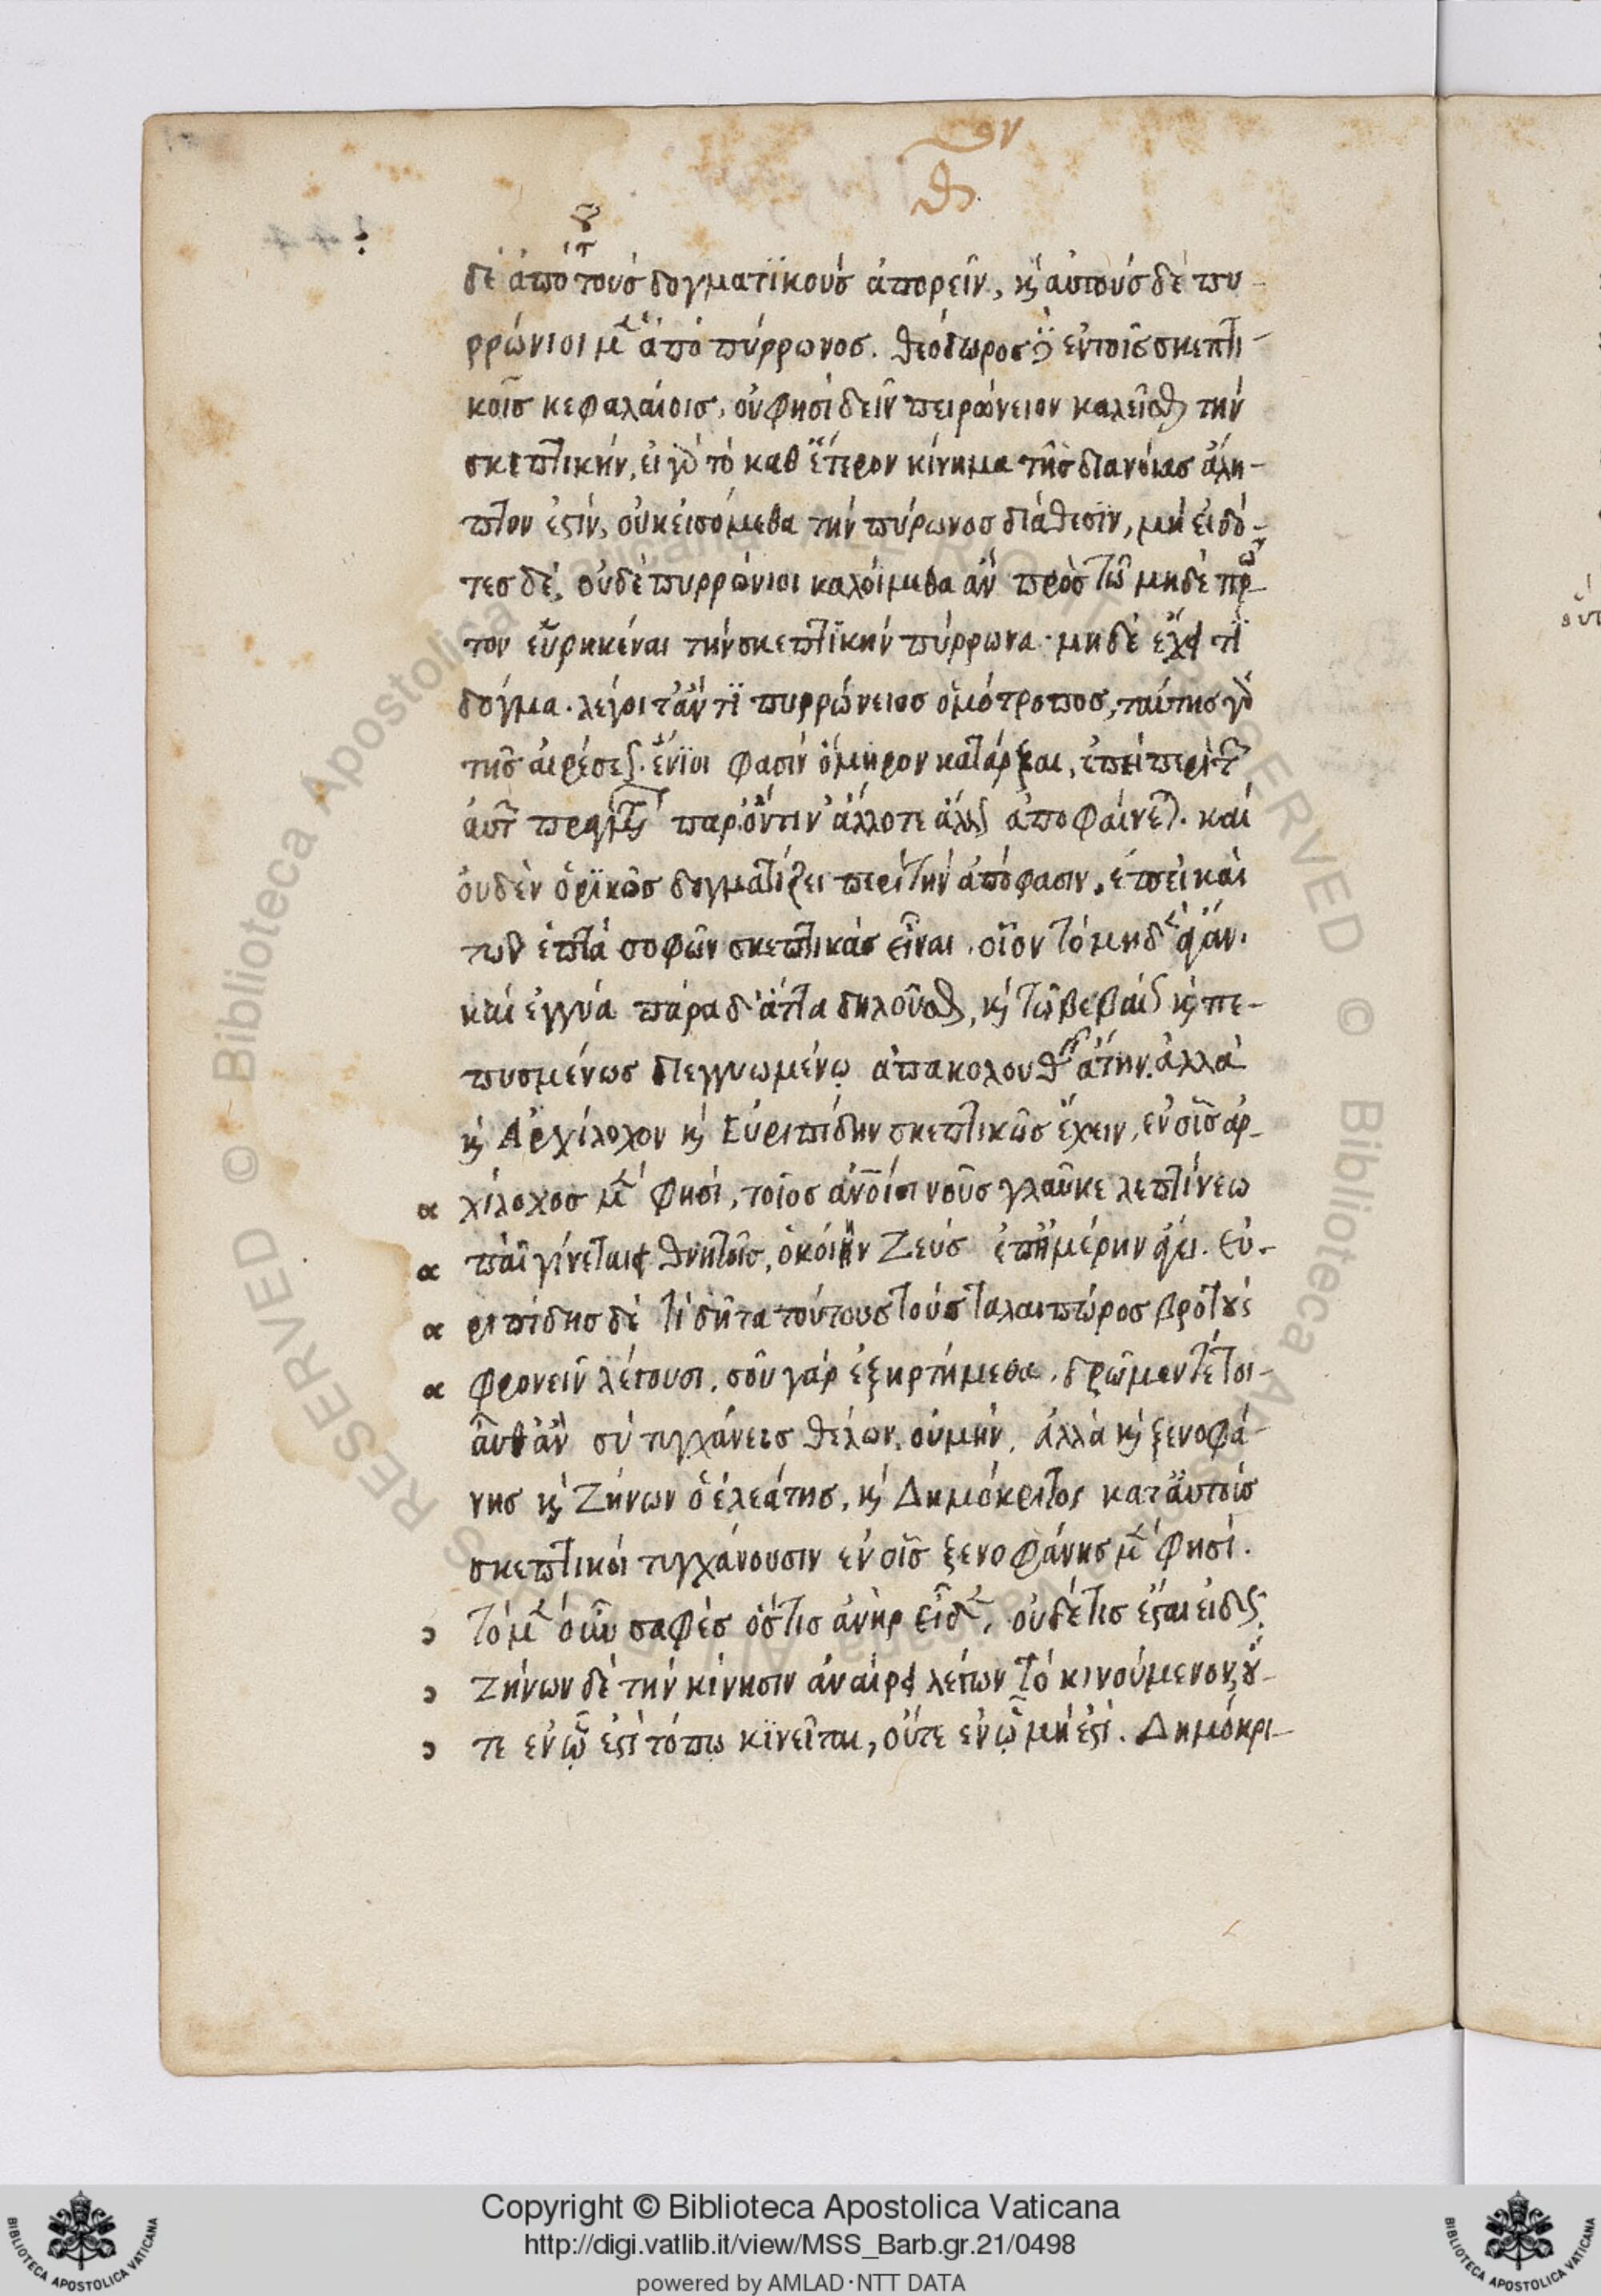 δὲ ἀπὸ τοῦ τοὺς δογματϊκοὺς ἀπορεῖν, κ αὐτοὺς δὲ πυ-
ρρώνιοι μὲν ἀπὸ πύρρωνος. θεόδωρος δ' ἐν τοῖς σκεπτι-
κοῖς κεφαλαίοις, οὐ φησὶ δεῖν πειρώνειον καλεῖσθαι τὴν
σκεπτικὴν, εἰ γὰρ τὸ καθ ἕτερον κίνημα τῆς διανοίας ἄλη-
πτον ἐστὶν, οὐκ εἰσόμεθα τὴν πύρωνος διάθεσϊν, μὴ εἰδό-
τες δὲ, οὐδὲ πυρρώνιοι καλοίμεθα ἂν πρὸς τῶ μηδὲ πρῶ-
τον εὑρηκέναι τὴν σκεπτϊκὴν πύρρωνα· μηδὲ ἔχειν τϊ
δόγμα. λέγοιτ ἄν τϊ πυρρώνειος ὁμότροπος, ταύτης γὰρ
τῆς αἱρέσεως. ἔνϊοι φασὶν ὅμηρον κατάρξαι, ἐπεὶ περὶ τῶν
αὐτῶν πραγμάτων παρ' ὀντιν ἄλλοτε ἄλλως ἀποφαίνεται. καὶ
οὐδὲν ὁρϊκῶς δογματίζει περὶ τὴν ἀπόφασιν, ἔπει καὶ
τῶν ἑπτὰ σοφῶν σκεπτικὰς εἶναι. οἷον τὸ μηδὲν ἄγαν.
καὶ ἐγγύα πάρα δ' ἄττα δηλοῦσθαι, κ τῶ βεβαίως κ πε-
πυσμένως διεγγυωμένῳ ἀπακολουθεῖν ἄτην. ἀλλὰ
κ Ἀρχίλοχον κ Εὐριπίδην σκεπτικῶς ἔχειν, ἐν οἷς ἀρ-
α χίλοχος μὲν φησὶ, τοῖος ἀνοῖσι νοῦς γλαῦκε λεπτίνεω
α παῖ γίνεται θνητοῖς, ὁκοίην Ζεὺς ἐπημέρην ἄγει. Εὐ-
α ριπίδης δὲ τί δῆτα τούτους τοὺς ταλαιπώρος βροτοὺς
α φρονεῖν λέγουσι, σοῦ γὰρ ἐξηρτήμεθα, δρῶμεν τέ τοι-
αῦθ ἂν σὺ τυγχάνεις θέλων, οὐ μὴν, ἀλλὰ κ ξενοφά-
νης κ Ζήνων ὁ ἐλεάτης, κ Δημόκριτος κατ αὐτοὺς
σκεπτικοὶ τυγχάνουσιν ἐν οἷς ξενοφάνης μὲν φησὶ.
τὸ μὲν οὖν σαφὲς ὅστις ἀνὴρ εἶδεν, οὐδέ τις ἔσται εἰδὼς.
Ζήνων δὲ τὴν κίνησιν ἀναίρει λέγων τὸ κινούμενον, οὔ-
τε ἐν ᾧ ἐστὶ τόπῳ κϊνεῖται, οὔτε ἐν ᾧ μὴ ἐστί. Δημόκρι-
Copyright © Biblioteca Apostolica Vaticana
http://digi.vatlib.it/view/MSS_Barb.gr.21/0498
powered by AMLAD·NTT DATA